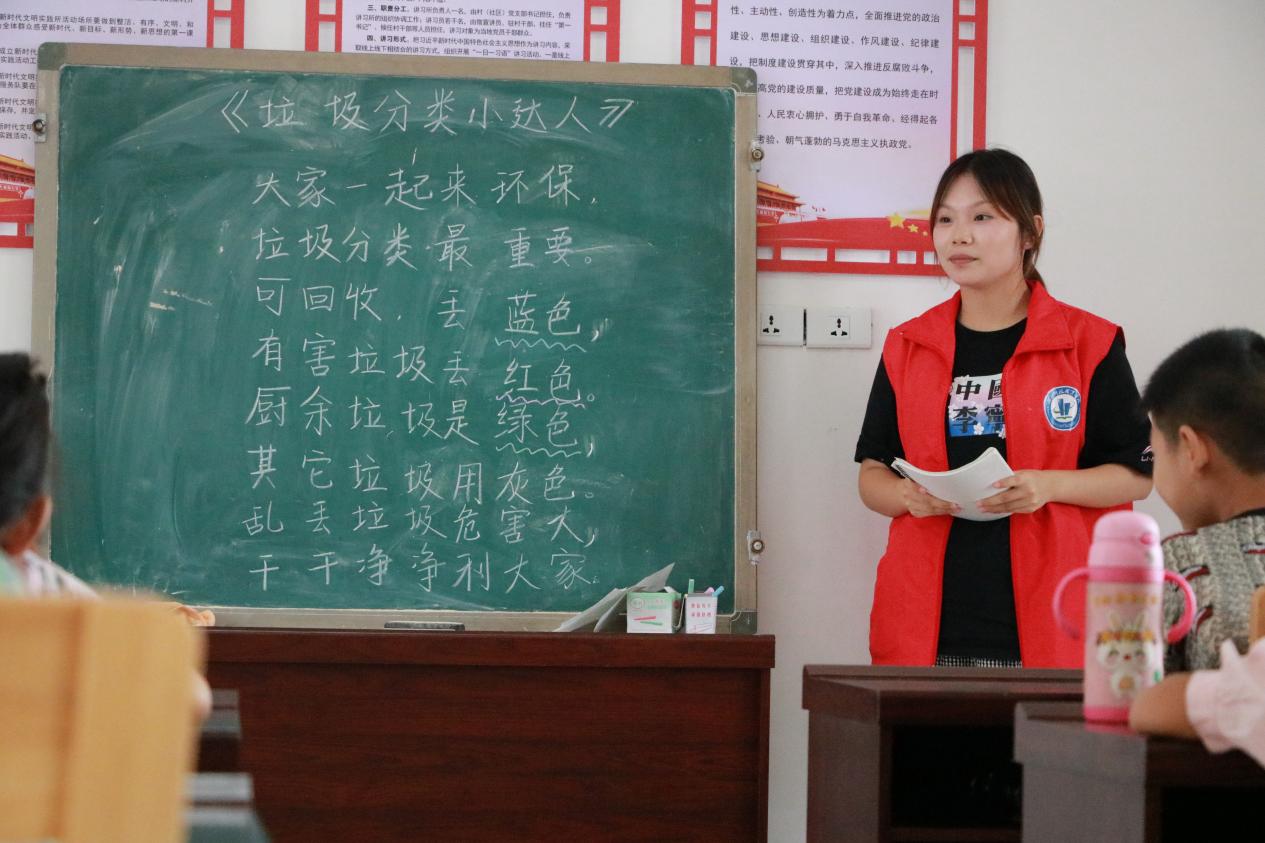 新时代文明实践所要做到整洁、有序、文明、和
全体群众感受新时代、新目标、新形势、新思想的第一课
三、职责分工。讲习所负责人一名，由村（社区）党支部书记担任，负责
讲习所的组织协调工作；讲习员若干名，由微宣讲员、驻村干部、挂任“第一
书记”、候任村干部等人员担任，讲习对象为当地党员干部群众。
四、讲习形式。把习近平新时代中国特色社会主义思想作为讲习内容，采
取线上线下相结合的讲习方式。组织开展“一日一习语”讲习活动，一是线上
性、主动性、创造性为着力点，全面推进党的政治
建设、思想建设、组织建设、作风建设、纪律建
设，把制度建设贯穿其中，深入推进反腐败斗争，
高党的建设质量，把党建设成为始终走在时
、人民衷心拥护、勇于自我革命、经得起各
考验、朝气蓬勃的马克思主义执政党。
《垃圾分类小达人》
大家一起来环保，
垃圾分类最重要。
可回收，丢蓝色，
有害垃圾丢红色。
厨余垃圾是绿色，
其它垃圾用灰色。
乱丢垃圾危害大，
干干净净利大家。
中國
李寧